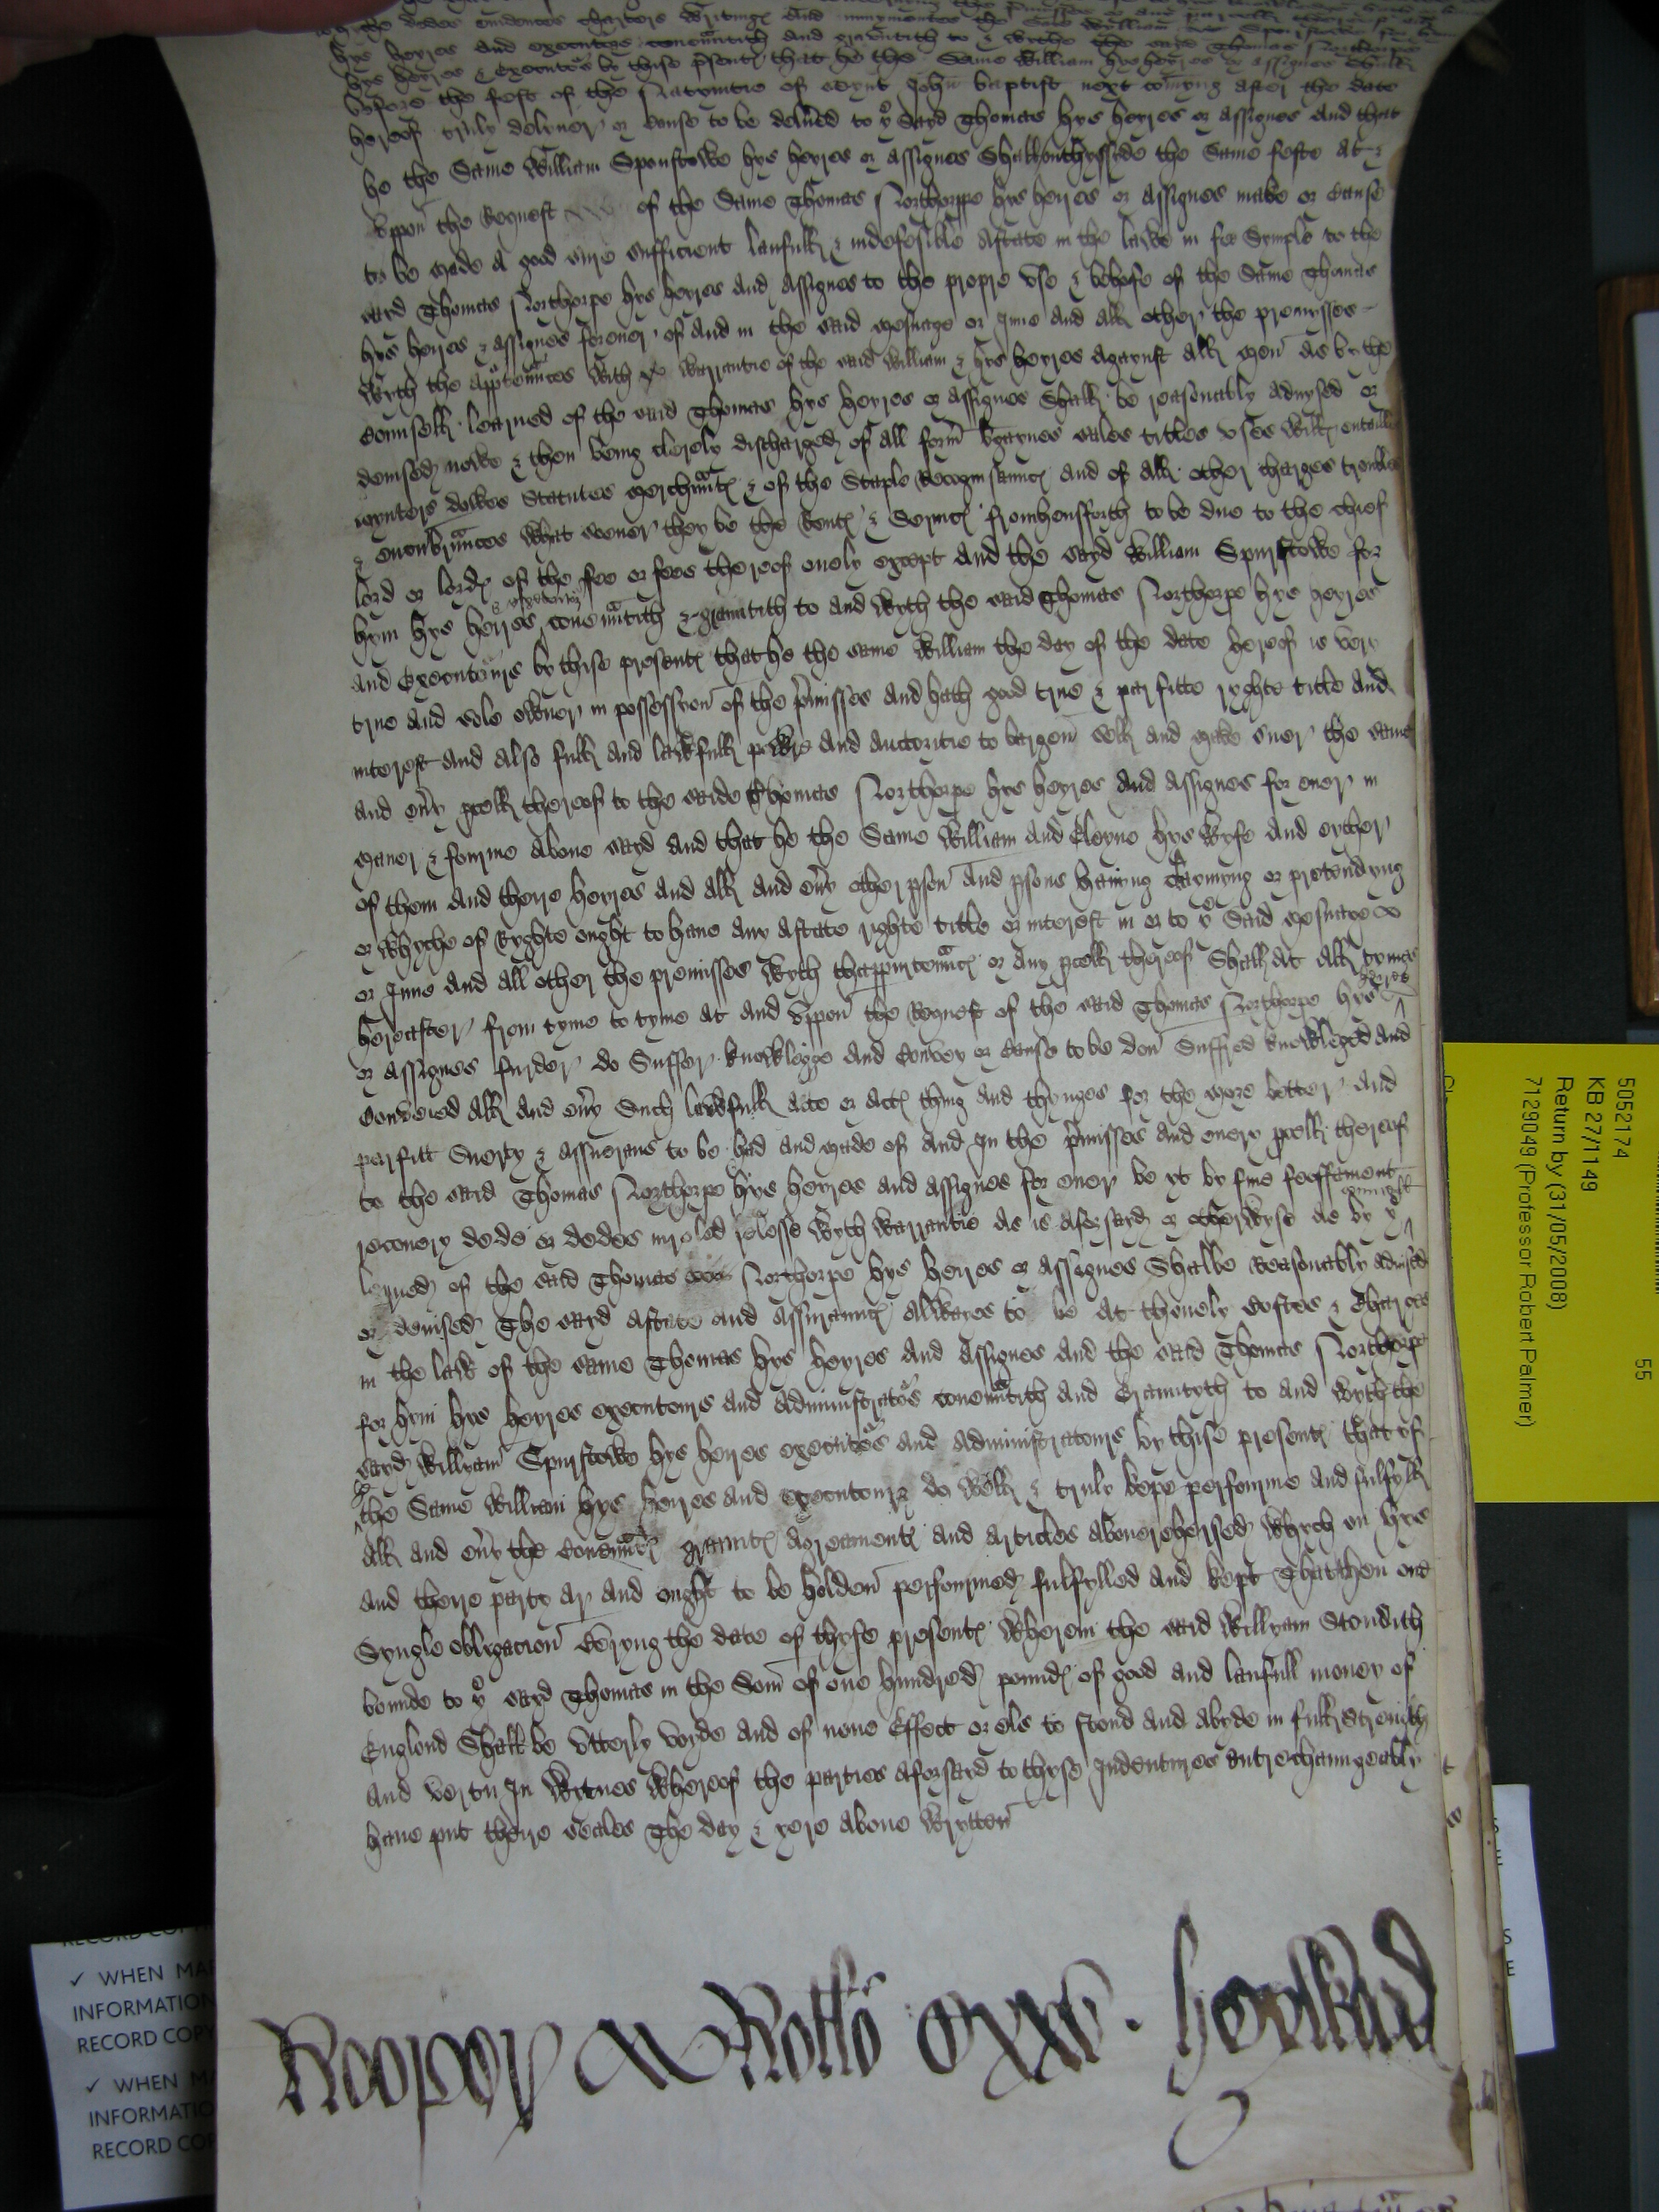 the dedes evidences charters writinges and mynymentes the said William
hys heyres and executors covenntith and grauntith to & wythe the said Thomas Northorpe
hys heyres & executors by thise psentes that he the same William hys heyres or assignes shall
before the fest of the Natyvitie of Seynt John baptist next comyng after the date
hereof truly delyver or cause to be delived to ye sayd Thomas hys heyres or assignes And that
he the same William Spurstowe hys heyres or assignes shall the same feste at &
uppon the Request of the same Thomas Northorppe hys heyres or assignes make or cause
to be made a good sure sufficient laufull & indefesible astate in the lawe in fee symple to the
sayd Thomas Northorpe hys heyres and assignes to the propre use & behofe of the same Thomas
hys heyres & assignes forever of and in the said mesuage or Inne and all other the premysses
wyth the appertennces with ye warrantie of the said William & hys heyres agaynst all men as by the
counsell learned of the said Thomas hys heyres or assignes shall be reasonably advysed or
devised nowe & then being clerely discharged of all form bgaynes sales titles uses willes entailles
ioynters dowes statutes merchantes & of the Staple Recognisaunces and of all other charges troubles
& encumbrances what soever they be the Rentes & servics fromhensforth to be due to the chief
lord or lordes of the fee or fees thereof onely except And the sayd William Spurstowe for
hym hys heyres & executors covenntith & grauntith to and wyth the said Thomas Northorpe hys heyres
and executours by thise presentes that he the same William the day of the date hereof is very
true and sole owner in possession of the pmisses and hath good true & parfitte ryghte title and
interest and also full and lawfull powre and auctoritie to bargen sell and make suer the same
and evy pcell thereof to the saide Thomas Northorpe hys heyres and assignes for ever in
maner & fourme above sayd and that he the same William and Eleyne hys wyfe and eyther
of them and theire heyres and all and evy other pson and psons havyng claymyng or pretendyng
or whyche of Ryghte ought to have any astate righte title or interest in or to ye said mesuage
or Inne and all other the premisses wyth thappurtenncs or any pcell thereof shall at all tymes
hereafter from tyme to tyme at and uppon the Request of the said Thomas Northorpe hys heyres
or assignes furder do suffer knowlegge and convey or cause to be don suffred knowleged and
conveied all and evy such lawfull acte or actes thing and thynges for the more better and
parfitt suerty & assuerans to be had and made of and In the pmisses and every pcell thereof
to the said Thomas Northorpe hys heyres and assignes for ever be yt by fine feoffament
recovery dede or dedes inroled relesse wyth warrantie as is aforsayd or otherwyse as by ye counsell
lerned of the said Thomas Northorpe hys heyres or assignes shalbe reasonably advised
or devised The sayd astate and assurauncs allwaies to be at thonely costes & charges
in the law of the same Thomas hys heyres and assignes And the said Thomas Northorpe
for hym hys heyres executours and administrators covenntith and grauntyth to and wyth the
sayd Willyam Spurstowe hys heyres executors and administratours by thise presentes that yf
he the same William hys heyres and executours do well & truly kepe performe and fulfyll
all and evy the covennts grauntes agreamentes and articles above rehersed whych on hys
and theire partes ar and ought to be holden performed fulfylled and kept That then one
syngle obligacion beryng the date of thyse presentes wherein the said Willyam stondith
bounde to ye sayd Thomas in the som of one hundred poundes of good and laufull money of
Englond shall be utterly voyde and of none Effect or els to stond and abyde in full strenith
and vertu In Wytnes whereof the parties aforsayd to thyse Indentures entrechaungeably
have put theire seales The day & yere above wrytten
Rotlo cxxv
5052174
KB 27/1149
Return by (31/05/2008)
7129049 (Professor Robert Palmer)
55
RECORD COP
✓ WHEN MA
INFORMATION
RECORD COPY
✓ WHEN MA
INFORMATIO
RECORD COP